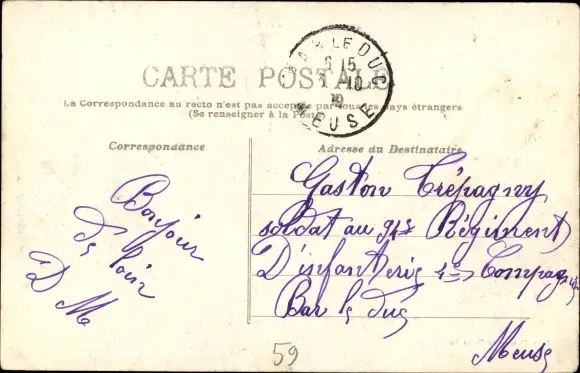 CARTE POSTALE
BAR LE DUC
6 15
7 10
MEUSE
La Correspondance au recto n'est pas acceptée par tous les pays étrangers
(Se renseigner à la Poste)
Correspondance
Adresse du Destinataire
Bonjour
de loin
D M
Gaston Trépagny
soldat au 94e Régiment
D'infanterie 4e Compagnie
Bar le duc
Meuse
59